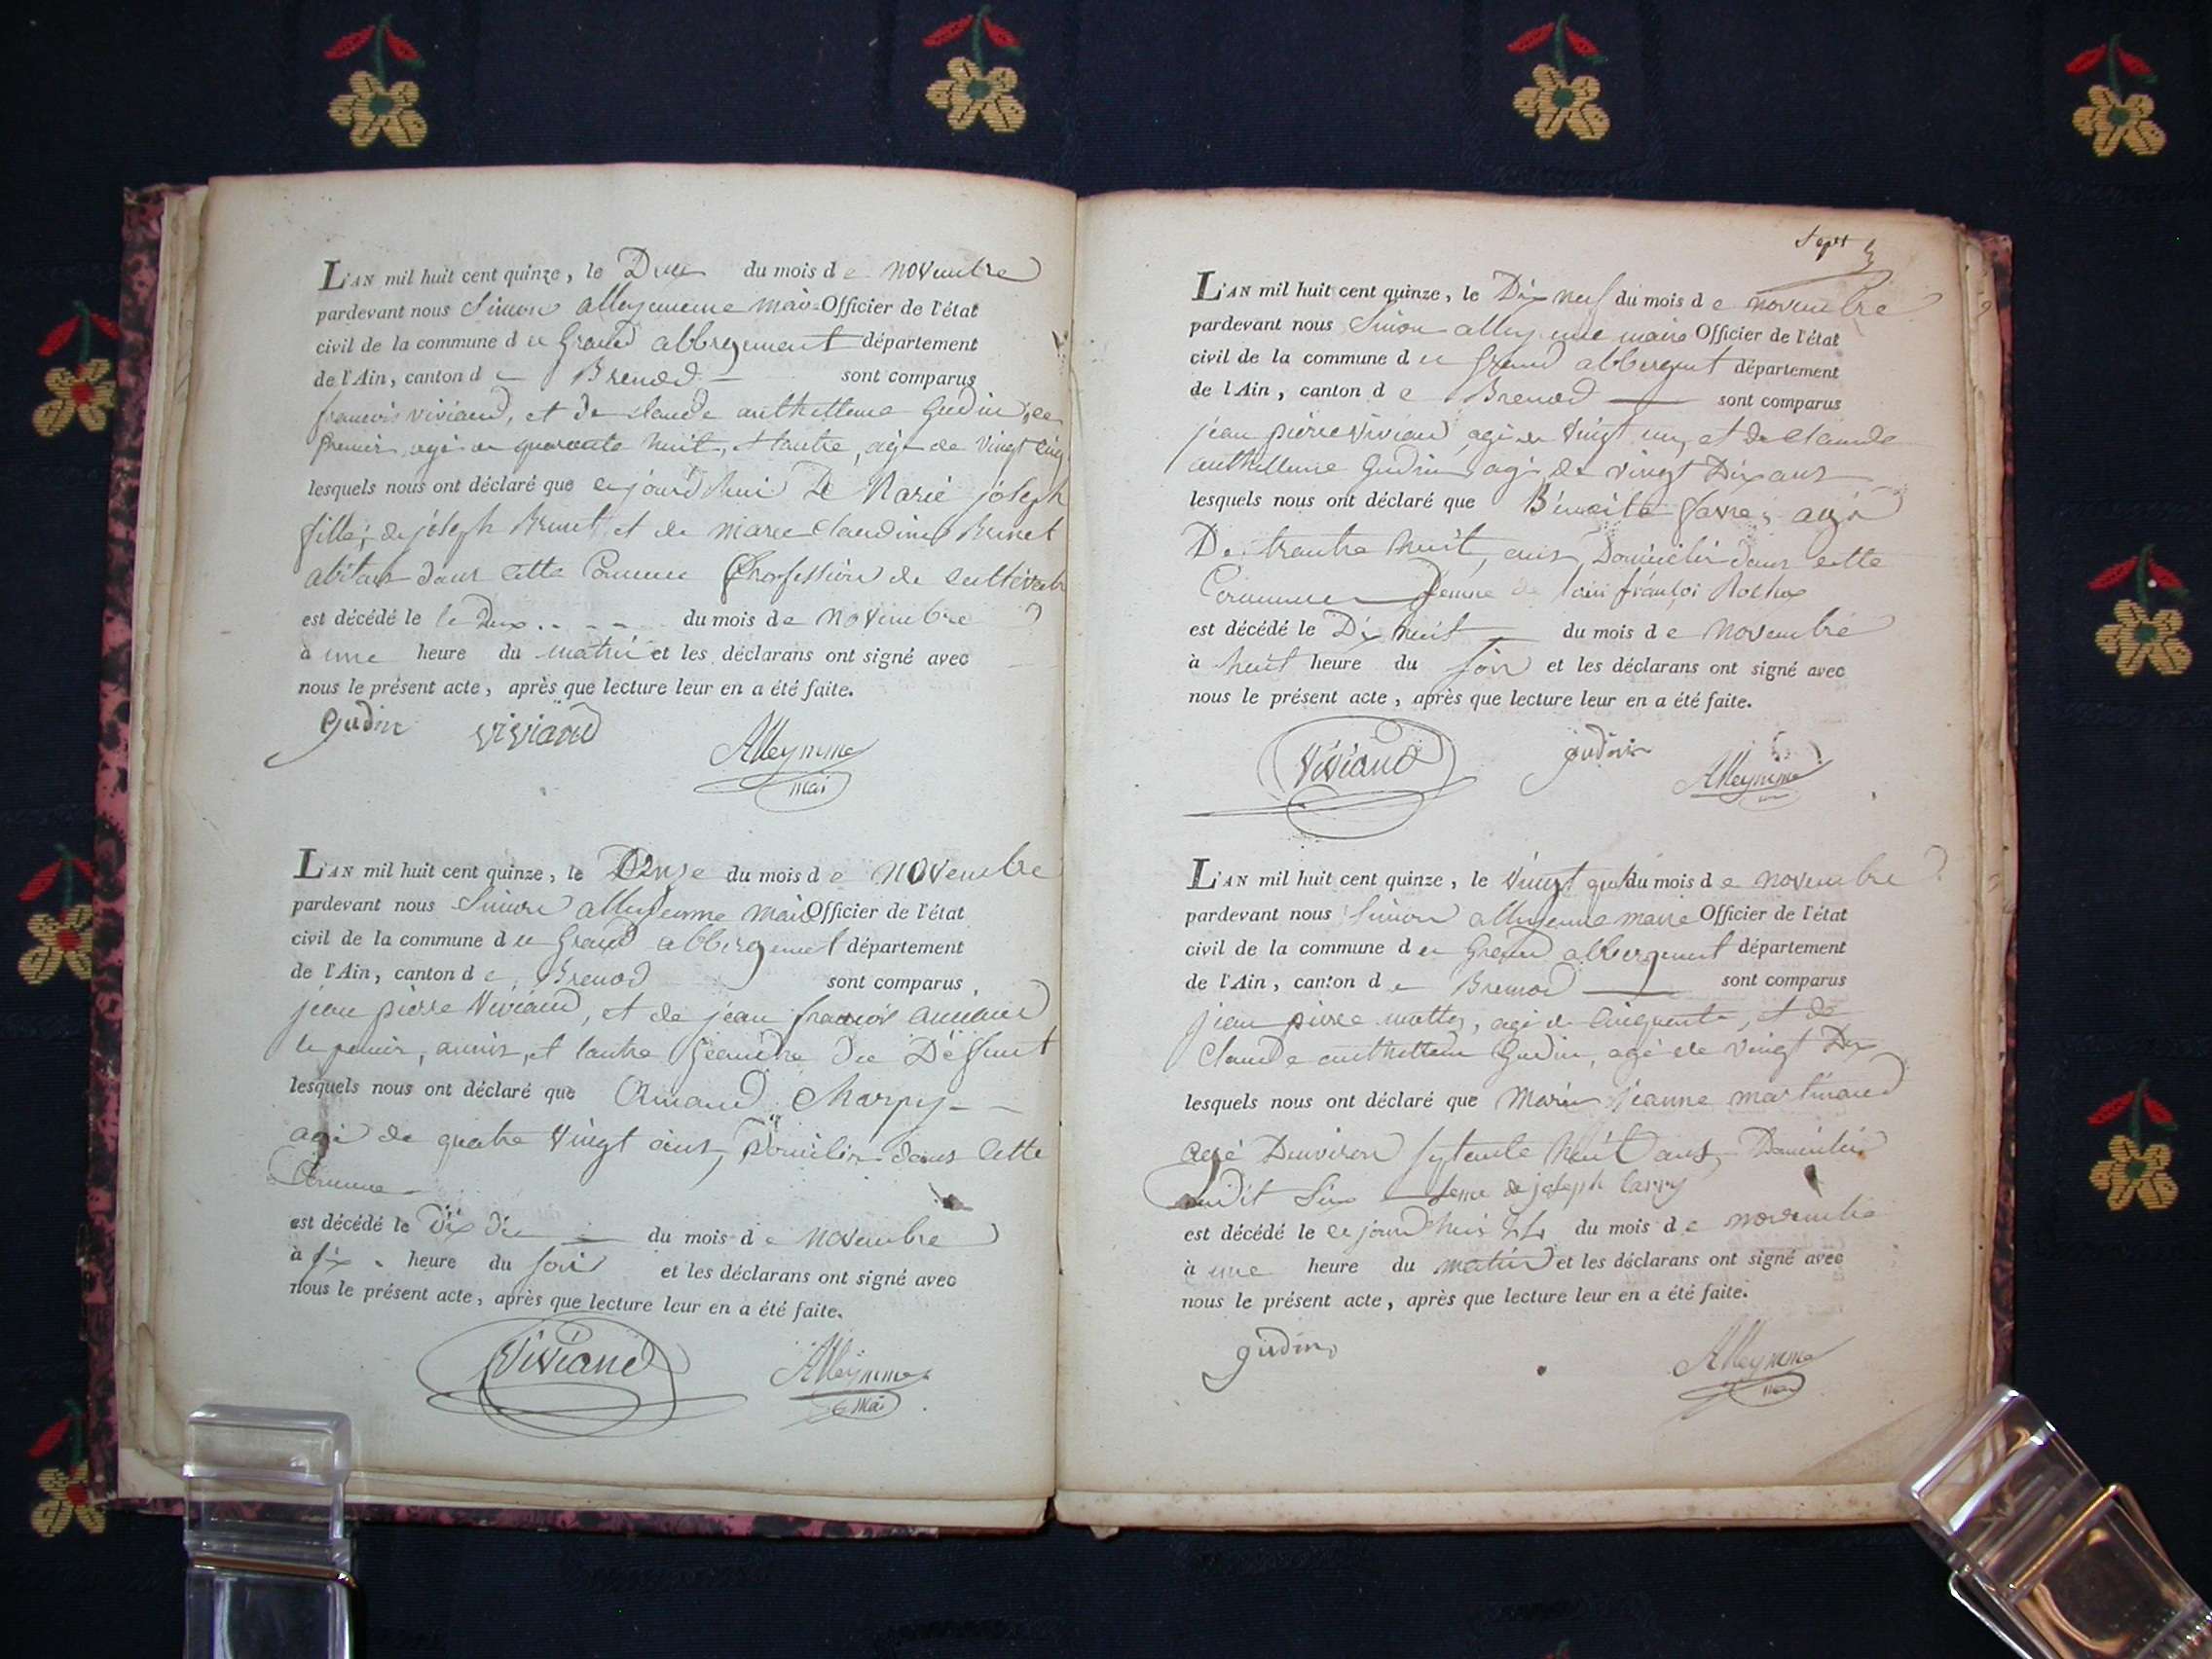 L'AN mil huit cent quinze, le Deux du mois de novembre
pardevant nous Simon alleymeme maire Officier de l'état
civil de la commune du Grand abbregement département
de l'Ain, canton de Brenod sont comparus
francois viviand, et de claude anthellme Gudin, le
premier agé de quarante huit, et lautre, agé de vingt cinq
lesquels nous ont déclaré que cejourd'hui De Marie joseph
fille, de joseph Brunet et de marie claudine Brunet
abitans dans cette Commune Proffession de cultivateur
est décédé le le Deux du mois de novembre
à une heure du matin et les déclarans ont signé avec
nous le présent acte, après que lecture leur en a été faite.
gudin viviand Alleymme
mai
L'AN mil huit cent quinze, le Onze du mois de novembre
pardevant nous Simon alleyemme maire Officier de l'état
civil de la commune du Grand abbergement département
de l'Ain, canton de Brenod sont comparus
jean pierre Viviand, et de jean francois
le premier, amis, et lautre Geandre du Deffunt
lesquels nous ont déclaré que Amand Charpy
agé de quatre vingt ans, Domicilié dans Cette
Commune
est décédé le Dix du mois de novembre
à six heure du soir et les déclarans ont signé avec
nous le présent acte, après que lecture leur en a été faite.
Viviand Alleymme
mai
Sept
L'AN mil huit cent quinze, le Dix neuf du mois de novembre
pardevant nous Simon alleymme maire Officier de l'état
civil de la commune du Grand abbergement département
de l'Ain, canton de Brenod sont comparus
jean pierre Viviand, agé de vingt un, et de claude
anthellme Gudin agé de vingt Dix ans
lesquels nous ont déclaré que Benoite favre, agé
De trante huit, ans, Domicilié dans cette
Commune femme de francoi
est décédé le Dix huit du mois de novembre
à huit heure du soir et les déclarans ont signé avec
nous le présent acte, après que lecture leur en a été faite.
Viviand gudin Alleymme
L'AN mil huit cent quinze, le vingt du mois de novembre
pardevant nous Simon alleyemme maire Officier de l'état
civil de la commune du Grand abbergement département
de l'Ain, canton de Brenod sont comparus
jean pierre agé de Cinquante, et de
Claude anthellme Gudin, agé de vingt Dix
lesquels nous ont déclaré que Marie jeanne martinand
agé Denviron septente huit ans Domicilié
audit lieu feme de joseph Carry
est décédé le cejourd'hui 24 du mois de novembre
à une heure du matin et les déclarans ont signé avec
nous le présent acte, après que lecture leur en a été faite.
gudin Alleymme
mai